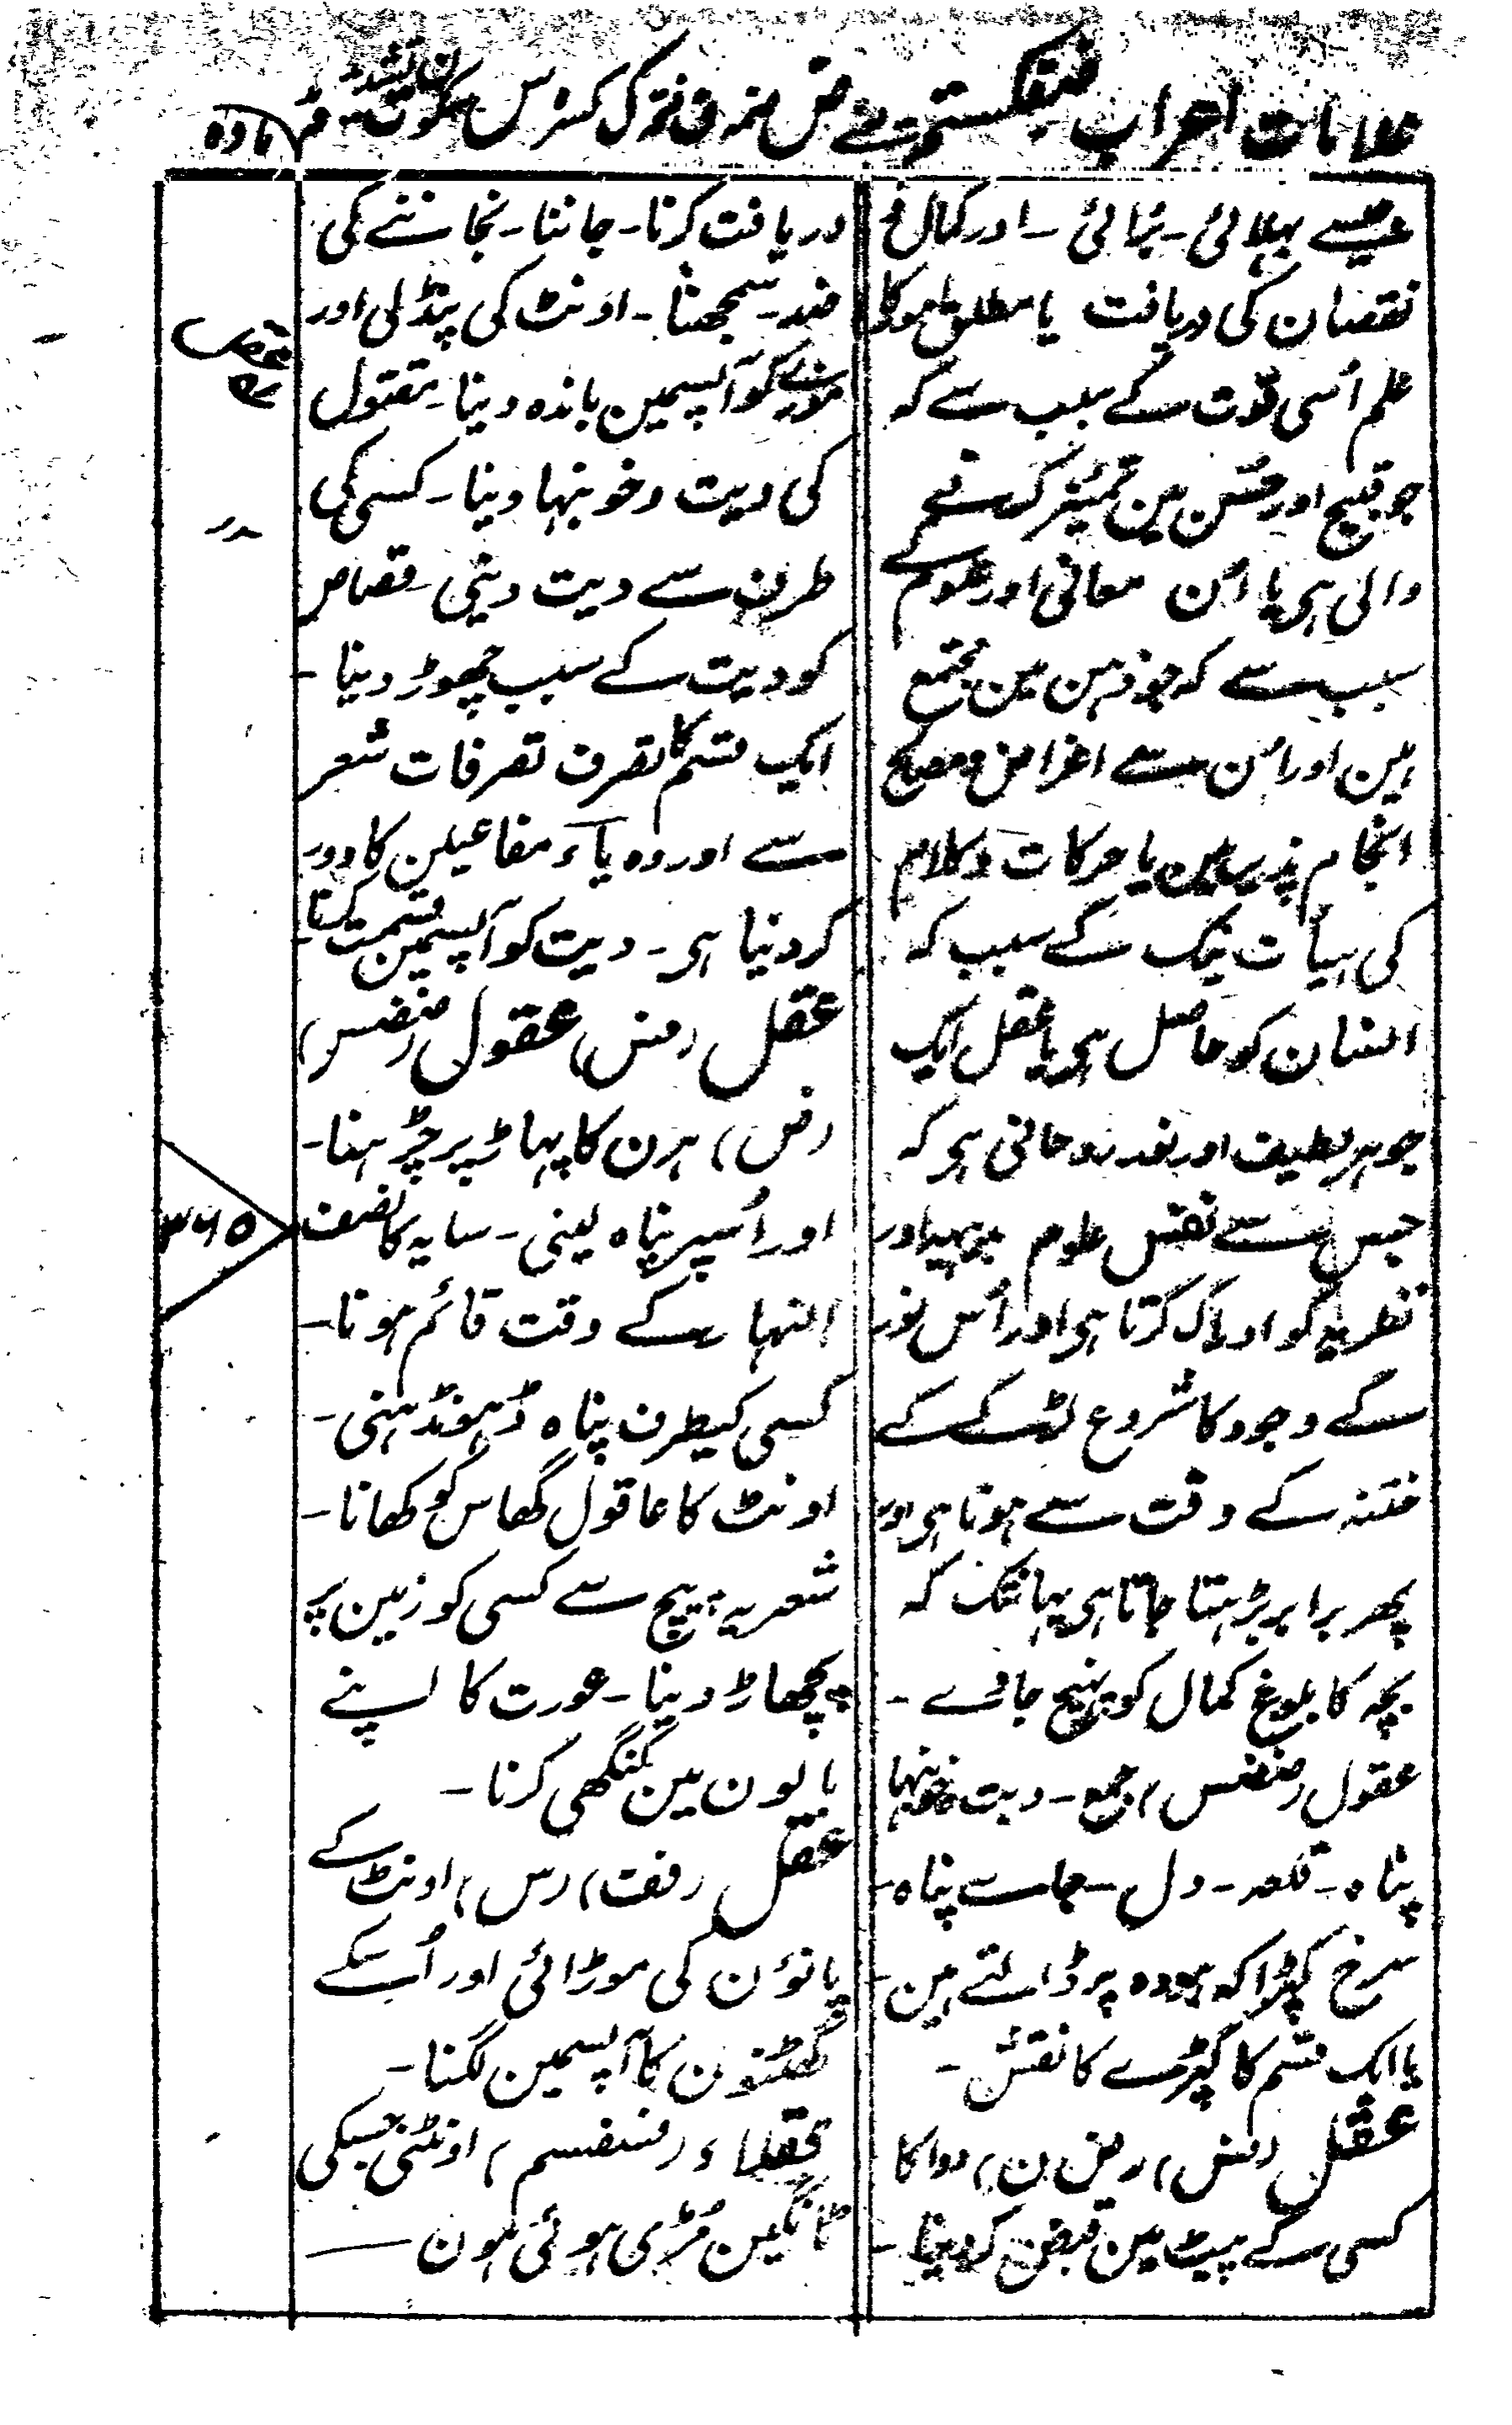 علامات اعراب
مادہ
جیسے بہلائی۔ بُرائی۔ اور کمال و
نقصان کی دریافت یا مطلق امور کا
علم اُسی قوّت کے سبب سے کہ
جو قبیح اور حسن مین تمیز کرنے
والی ہی یا اُن معانی اور علوم کے
سبب سے کہ جو ذہن مین مجتمع
ہین اور اُن سے اغراض و مصالح
انجام پذیر ہین یا حرکات و کلام
کی ہیأت نیک کے سبب کہ
انسان کو حاصل ہی یا عقل ایک
جوہر لطیف اور نور روحانی ہی کہ
جس سے نفس علوم بدیہیہ اور
نظریہ کو ادراک کرتا ہی اور اُس نور
کے وجود کا شروع لڑکے کے
ختنہ کے وقت سے ہوتا ہی اور
پھر برابر بڑہتا جاتا ہی یہانتک کہ
بچہ کا بلوغ کمال کو پہنچ جاوے۔
عقول (ضفس) جمع۔ دیت خونبہا
پناہ۔ قلعہ۔ دل۔ جاے پناہ۔
سرخ کپڑا کہ ہودہ پر ڈالتے ہین۔
یا ایک قسم کا کپڑے کا نقش۔
عقل (فس) (ض ن) دوا کا
کسی کے پیٹ مین قبض کر دینا۔
دریافت کرنا۔ جاننا۔ نجاننے کی
ضد۔ سمجھنا۔ اونٹ کی پنڈلی اور
کو آپسمین باندہ دینا۔ مقتول
کی دیت و خونبہا دینا۔ کسی کی
طرف سے دیت دینی۔ قصاص
کو دیت کے سبب چھوڑ دینا۔
ایک قسم کا تصرف تصرفات شعر
سے اور وہ یاء مفاعیلن کا دور
کر دینا ہی۔ دیت کو آپسمین قسمت کرنا۔
عقل (فس) عقول (ضفس)
(ض) ہرن کا پہاڑ پر چڑہنا۔
اور اُسپر پناہ لینی۔ سایہ کا نصف
النہار کے وقت قائم ہونا۔
کسی کیطرف پناہ ڈہونڈہنی۔
اونٹ کا عاقول گھاس کو کھانا۔
شعریہ پیچ سے کسی کو زمین پر
پچھاڑ دینا۔ عورت کا اپنے
بالون مین کنگھی کرنا۔
عقل (فت) (س) اونٹ کے
پانؤن کی موڑائی اور اُسکے
گھٹنون کا آپسمین لگنا۔
عقلاء (فسفسم) اونٹنی جسکی
ٹانگین مُڑی ہوئی ہون
۳۶۵